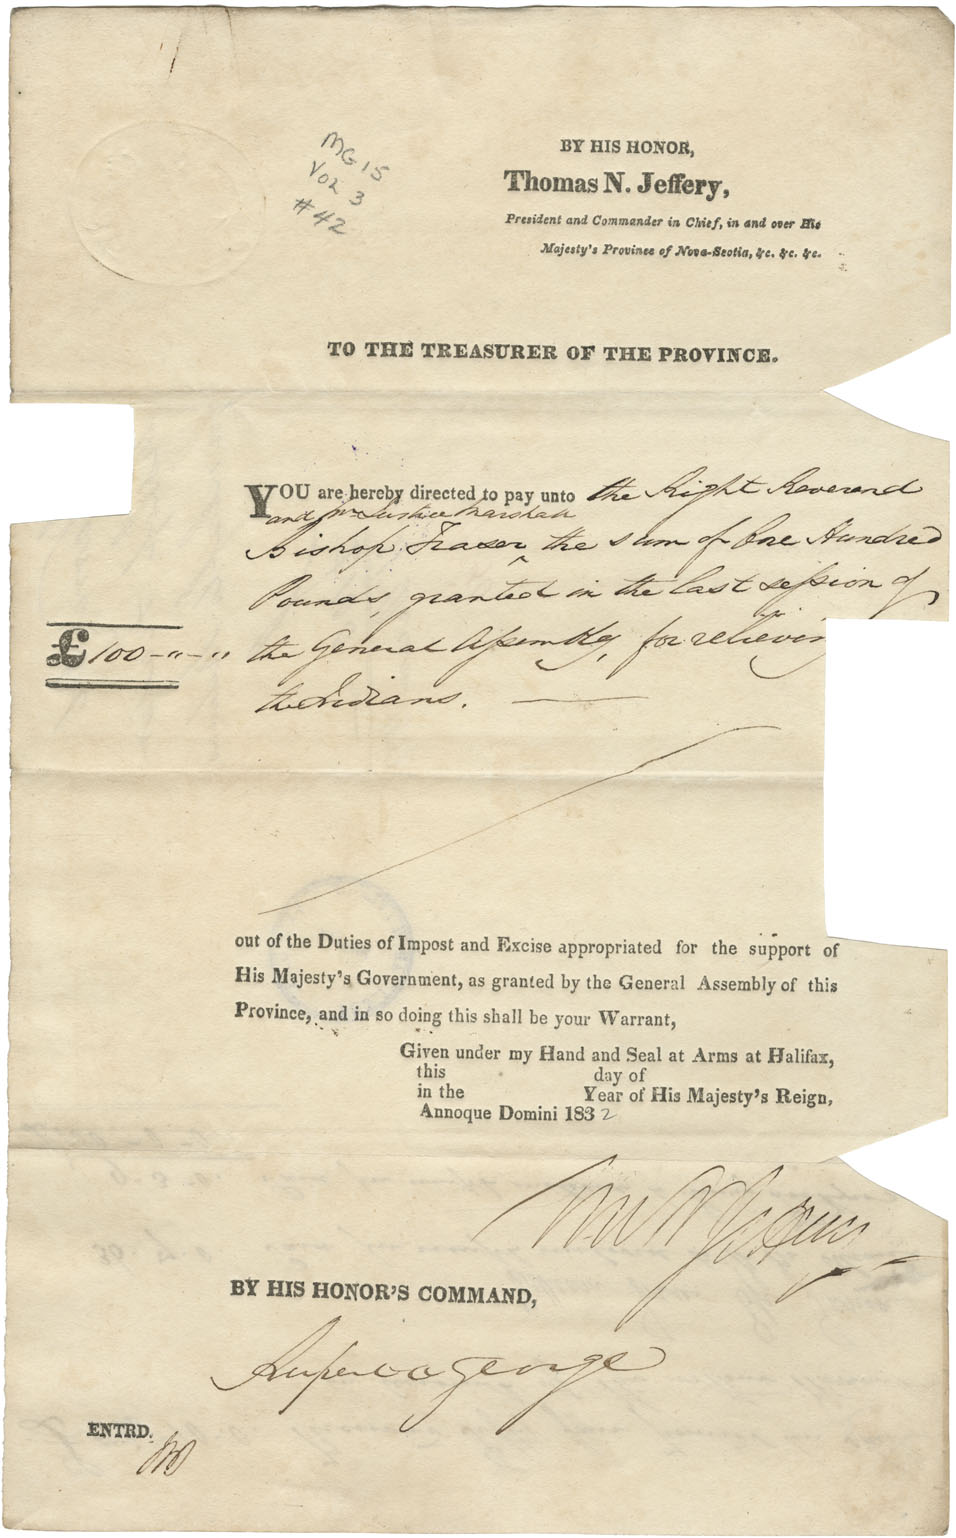 MG 15
Vol 3
#42
BY HIS HONOR,
Thomas N. Jeffery,
President and Commander in Chief, in and over His
Majesty's Province of Nova-Scotia, &c. &c. &c.
TO THE TREASURER OF THE PROVINCE.
YOU are hereby directed to pay unto the Right Reverend
and Mr Justice Marshall
Bishop Fraser ^ the sum of One Hundred
Pounds, granted in the last session of
£100-"-" the General Assembly, for relievin
the Indians.
out of the Duties of Impost and Excise appropriated for the support of
His Majesty's Government, as granted by the General Assembly of this
Province, and in so doing this shall be your Warrant,
Given under my Hand and Seal at Arms at Halifax,
this day of
in the Year of His Majesty's Reign,
Annoque Domini 1832
BY HIS HONOR'S COMMAND,
Rupert D George
ENTRD.